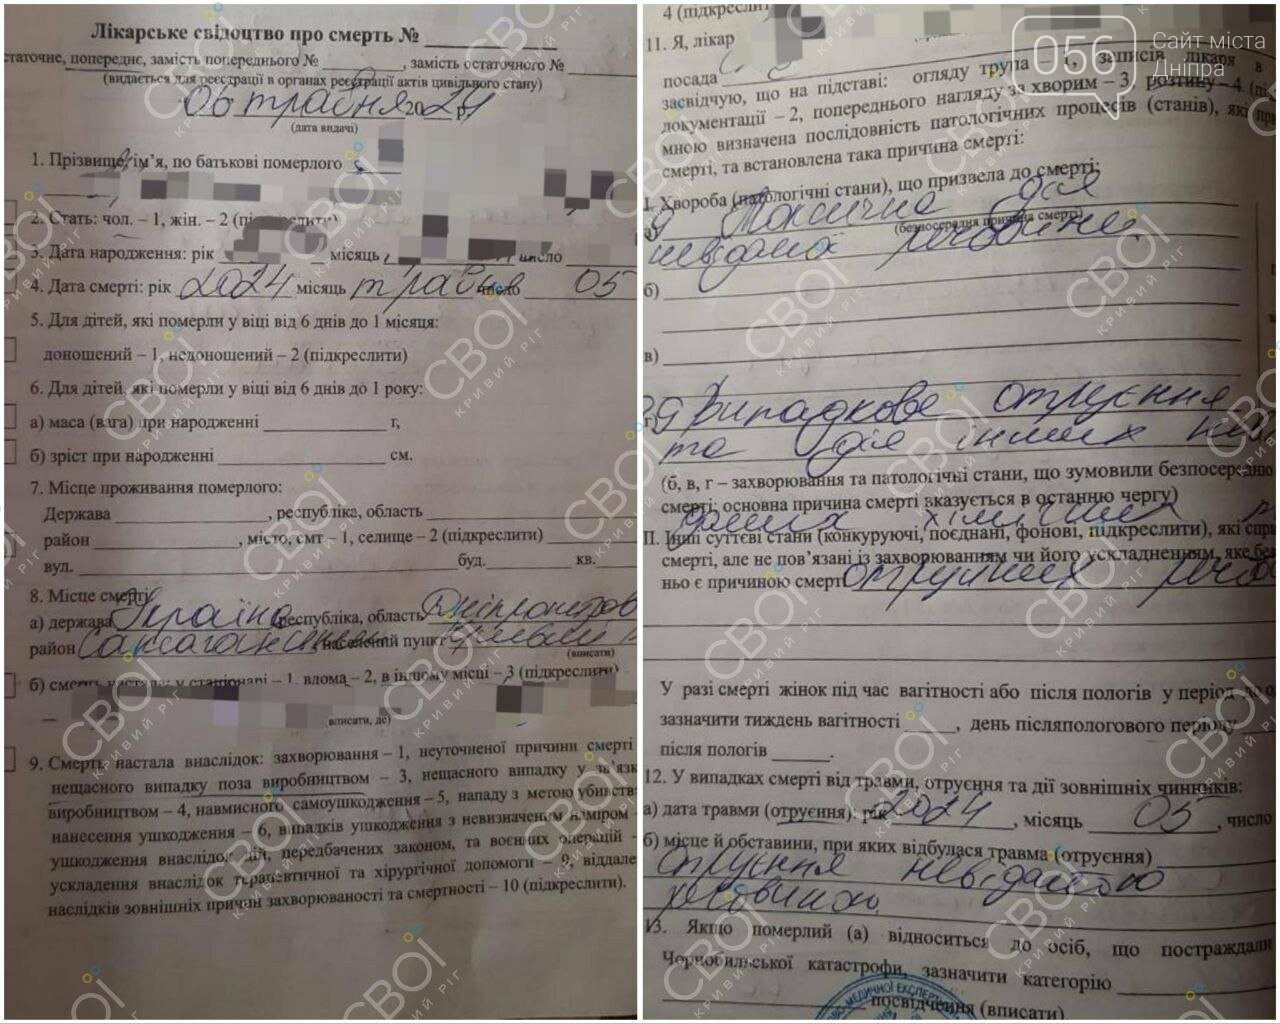 Лікарське свідоцтво про смерть №
статочне, попереднє, замість попереднього № , замість остаточного №
(видається для реєстрації в органах реєстрації актів цивільного стану)
06 травня 2024 р.
(дата видачі)
1. Прізвище, ім’я, по батькові померлого
2. Стать: чол. – 1, жін. – 2 (підкреслити)
3. Дата народження: рік місяць число
4. Дата смерті: рік 2024 місяць травня число 05
5. Для дітей, які померли у віці від 6 днів до 1 місяця:
доношений – 1, недоношений – 2 (підкреслити)
6. Для дітей, які померли у віці від 6 днів до 1 року:
а) маса (вага) при народженні г,
б) зріст при народженні см.
7. Місце проживання померлого:
Держава , республіка, область
район , місто, смт – 1, селище – 2 (підкреслити)
вул. буд. кв.
8. Місце смерті
а) держава Україна республіка, область Дніпропетров
район Саксаганський населений пункт Кривий Р
(вписати)
б) смерть настала: у стаціонарі – 1, вдома – 2, в іншому місці – 3 (підкреслити)
(вписати, де)
9. Смерть настала внаслідок: захворювання – 1, неуточненої причини смерті
нещасного випадку поза виробництвом – 3, нещасного випадку у зв’язк
виробництвом – 4, навмисного самоушкодження – 5, нападу з метою убивств
нанесення ушкодження – 6, випадків ушкодження з невизначеним наміром
ушкодження внаслідок дій, передбачених законом, та воєнних операцій
ускладення внаслідок терапевтичної та хірургічної допомоги – 9, віддале
наслідків зовнішніх причин захворюваності та смертності – 10 (підкреслити).
4 (підкреслити
11. Я, лікар
посада
засвідчую, що на підставі: огляду трупа – 1, записів лікаря в
документації – 2, попереднього нагляду за хворим – 3, розтину – 4 (пі
мною визначена послідовність патологічних процесів (станів), які при
смерті, та встановлена така причина смерті:
I. Хвороба (патологічні стани), що призвела до смерті:
а) Токсична дія
(безпосередня причина смерті)
невідомої речовини,
б)
в)
г) Випадкове отруєння
та дія інших
(б, в, г – захворювання та патологічні стани, що зумовили безпосередню
смерті; основна причина смерті вказується в останню чергу)
хімічних
II. Інші суттєві стани (конкуруючі, поєднані, фонові, підкреслити), які спри
смерті, але не пов’язані із захворюванням чи його ускладненням, яке без
ньо є причиною смерті отруйних речов
У разі смерті жінок під час вагітності або після пологів у період до
зазначити тиждень вагітності , день післяпологового періоду
після пологів
12. У випадках смерті від травми, отруєння та дії зовнішніх чинників:
а) дата травми (отруєння): рік 2024 , місяць 05 , число
б) місце й обставини, при яких відбулася травма (отруєння)
отруєння невідомою
речовиною.
13. Якщо померлий (а) відноситься до осіб, що постраждали
Чорнобильської катастрофи, зазначити категорію
посвідчення (вписати).
056 Сайт міста
Дніпра
СВОЇ
КРИВИЙ РІГ